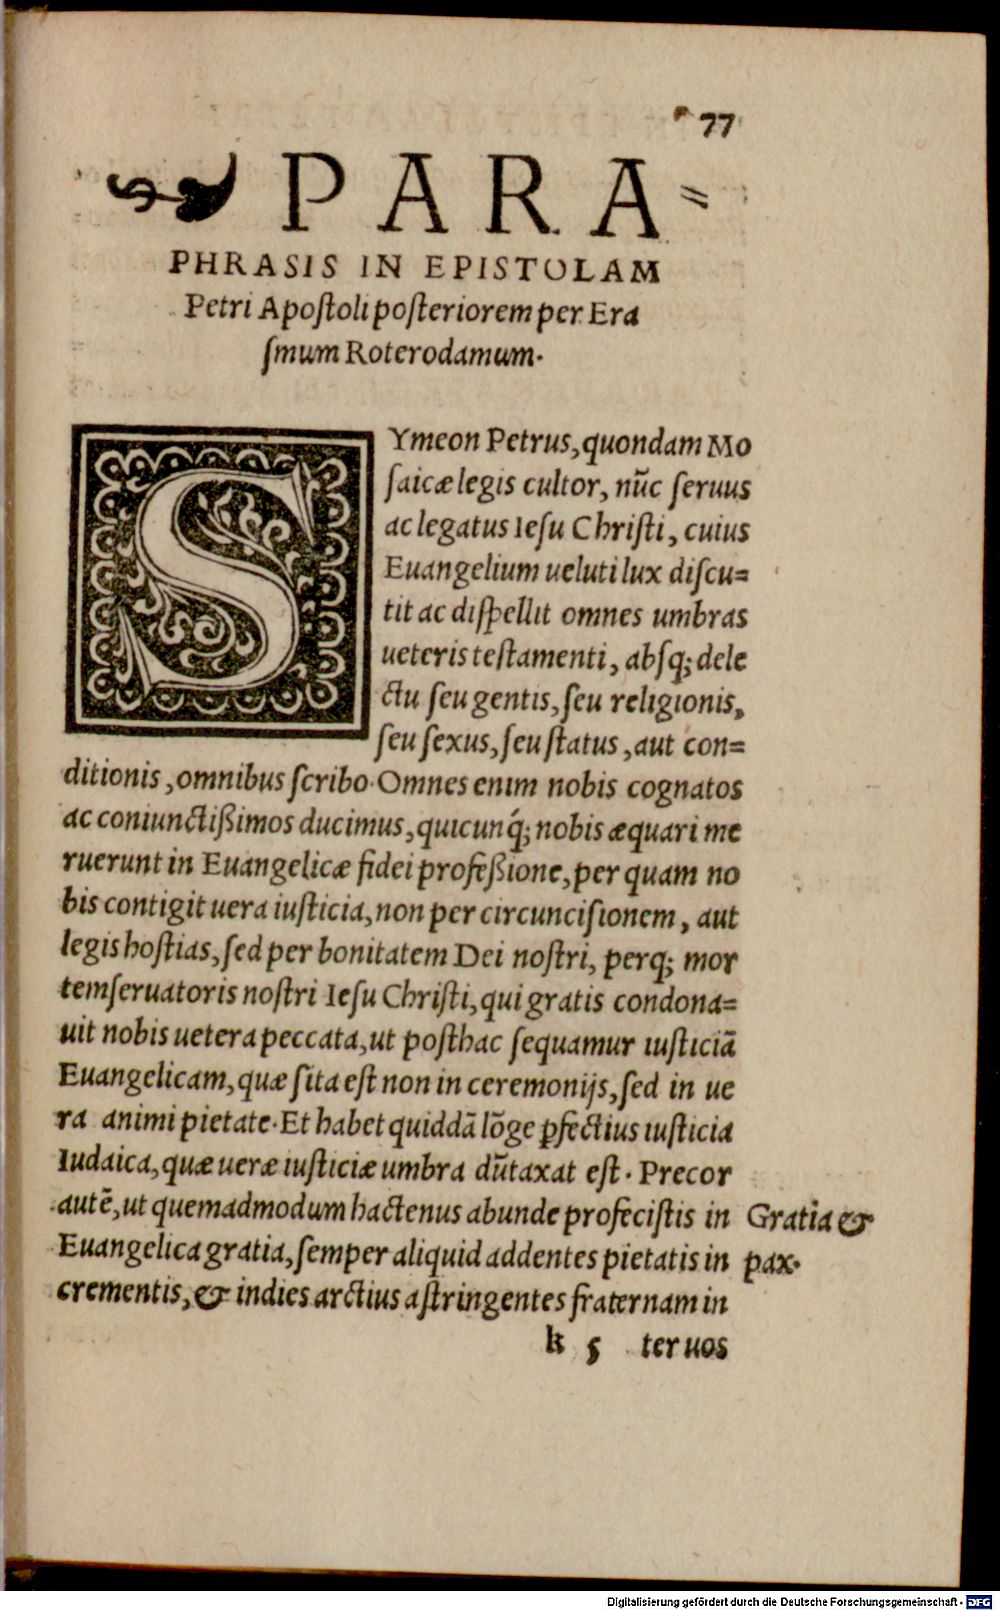 77
PARA=
PHRASIS IN EPISTOLAM
Petri Apostoli posteriorem per Era
smum Roterodamum.
SYmeon Petrus, quondam Mo
saicæ legis cultor, nūc seruus
ac legatus Iesu Christi, cuius
Euangelium ueluti lux discu=
tit ac dispellit omnes umbras
ueteris testamenti, absq; dele
ctu seu gentis, seu religionis,
seu sexus, seu status, aut con=
ditionis, omnibus scribo. Omnes enim nobis cognatos
ac coniunctißimos ducimus, quicunq́; nobis æquari me
ruerunt in Euangelicæ fidei profeßione, per quam no
bis contigit uera iusticia, non per circuncisionem, aut
legis hostias, sed per bonitatem Dei nostri, perq; mor
tem seruatoris nostri Iesu Christi, qui gratis condona=
uit nobis uetera peccata, ut posthac sequamur iusticiã
Euangelicam, quæ sita est non in ceremonijs, sed in ue
ra animi pietate. Et habet quiddã lõge ꝑfectius iusticia
Iudaica, quæ ueræ iusticiæ umbra dũtaxat est. Precor
autẽ, ut quemadmodum hactenus abunde profecistis in
Euangelica gratia, semper aliquid addentes pietatis in
crementis, & indies arctius astringentes fraternam in
Gratia &
pax.
k 5 ter uos
Digitalisierung gefördert durch die Deutsche Forschungsgemeinschaft - DFG